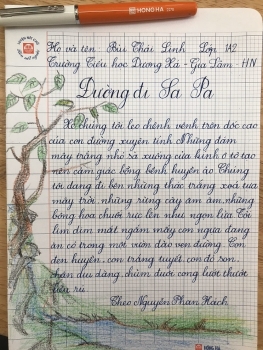 HỒNG HA
Họ và tên Bùi Thái Linh Lớp 1A2
Trường Tiểu học Dương Xá - Gia Lâm - HN
Đường đi Sa Pa
Xe chúng tôi leo chênh vênh trên dốc cao
của con đường xuyên tỉnh. Những đám
mây trắng nhỏ sà xuống cửa kính ô tô tạo
nên cảm giác bồng bềnh huyền ảo Chúng
tôi đang đi bên những thác trắng xoá tựa
mây trời những rừng cây âm âm, những
bông hoa chuối rực lên như ngọn lửa. Tôi
lim dim mắt ngắm mấy con ngựa đang
ăn cỏ trong một vườn đào ven đường. Con
đen huyền, con trắng tuyết, con đỏ son,
chân dịu dàng, chùm đuôi cong lướt thướt
liễu rủ.
Theo Nguyễn Phan Hách
HỒNG HÀ